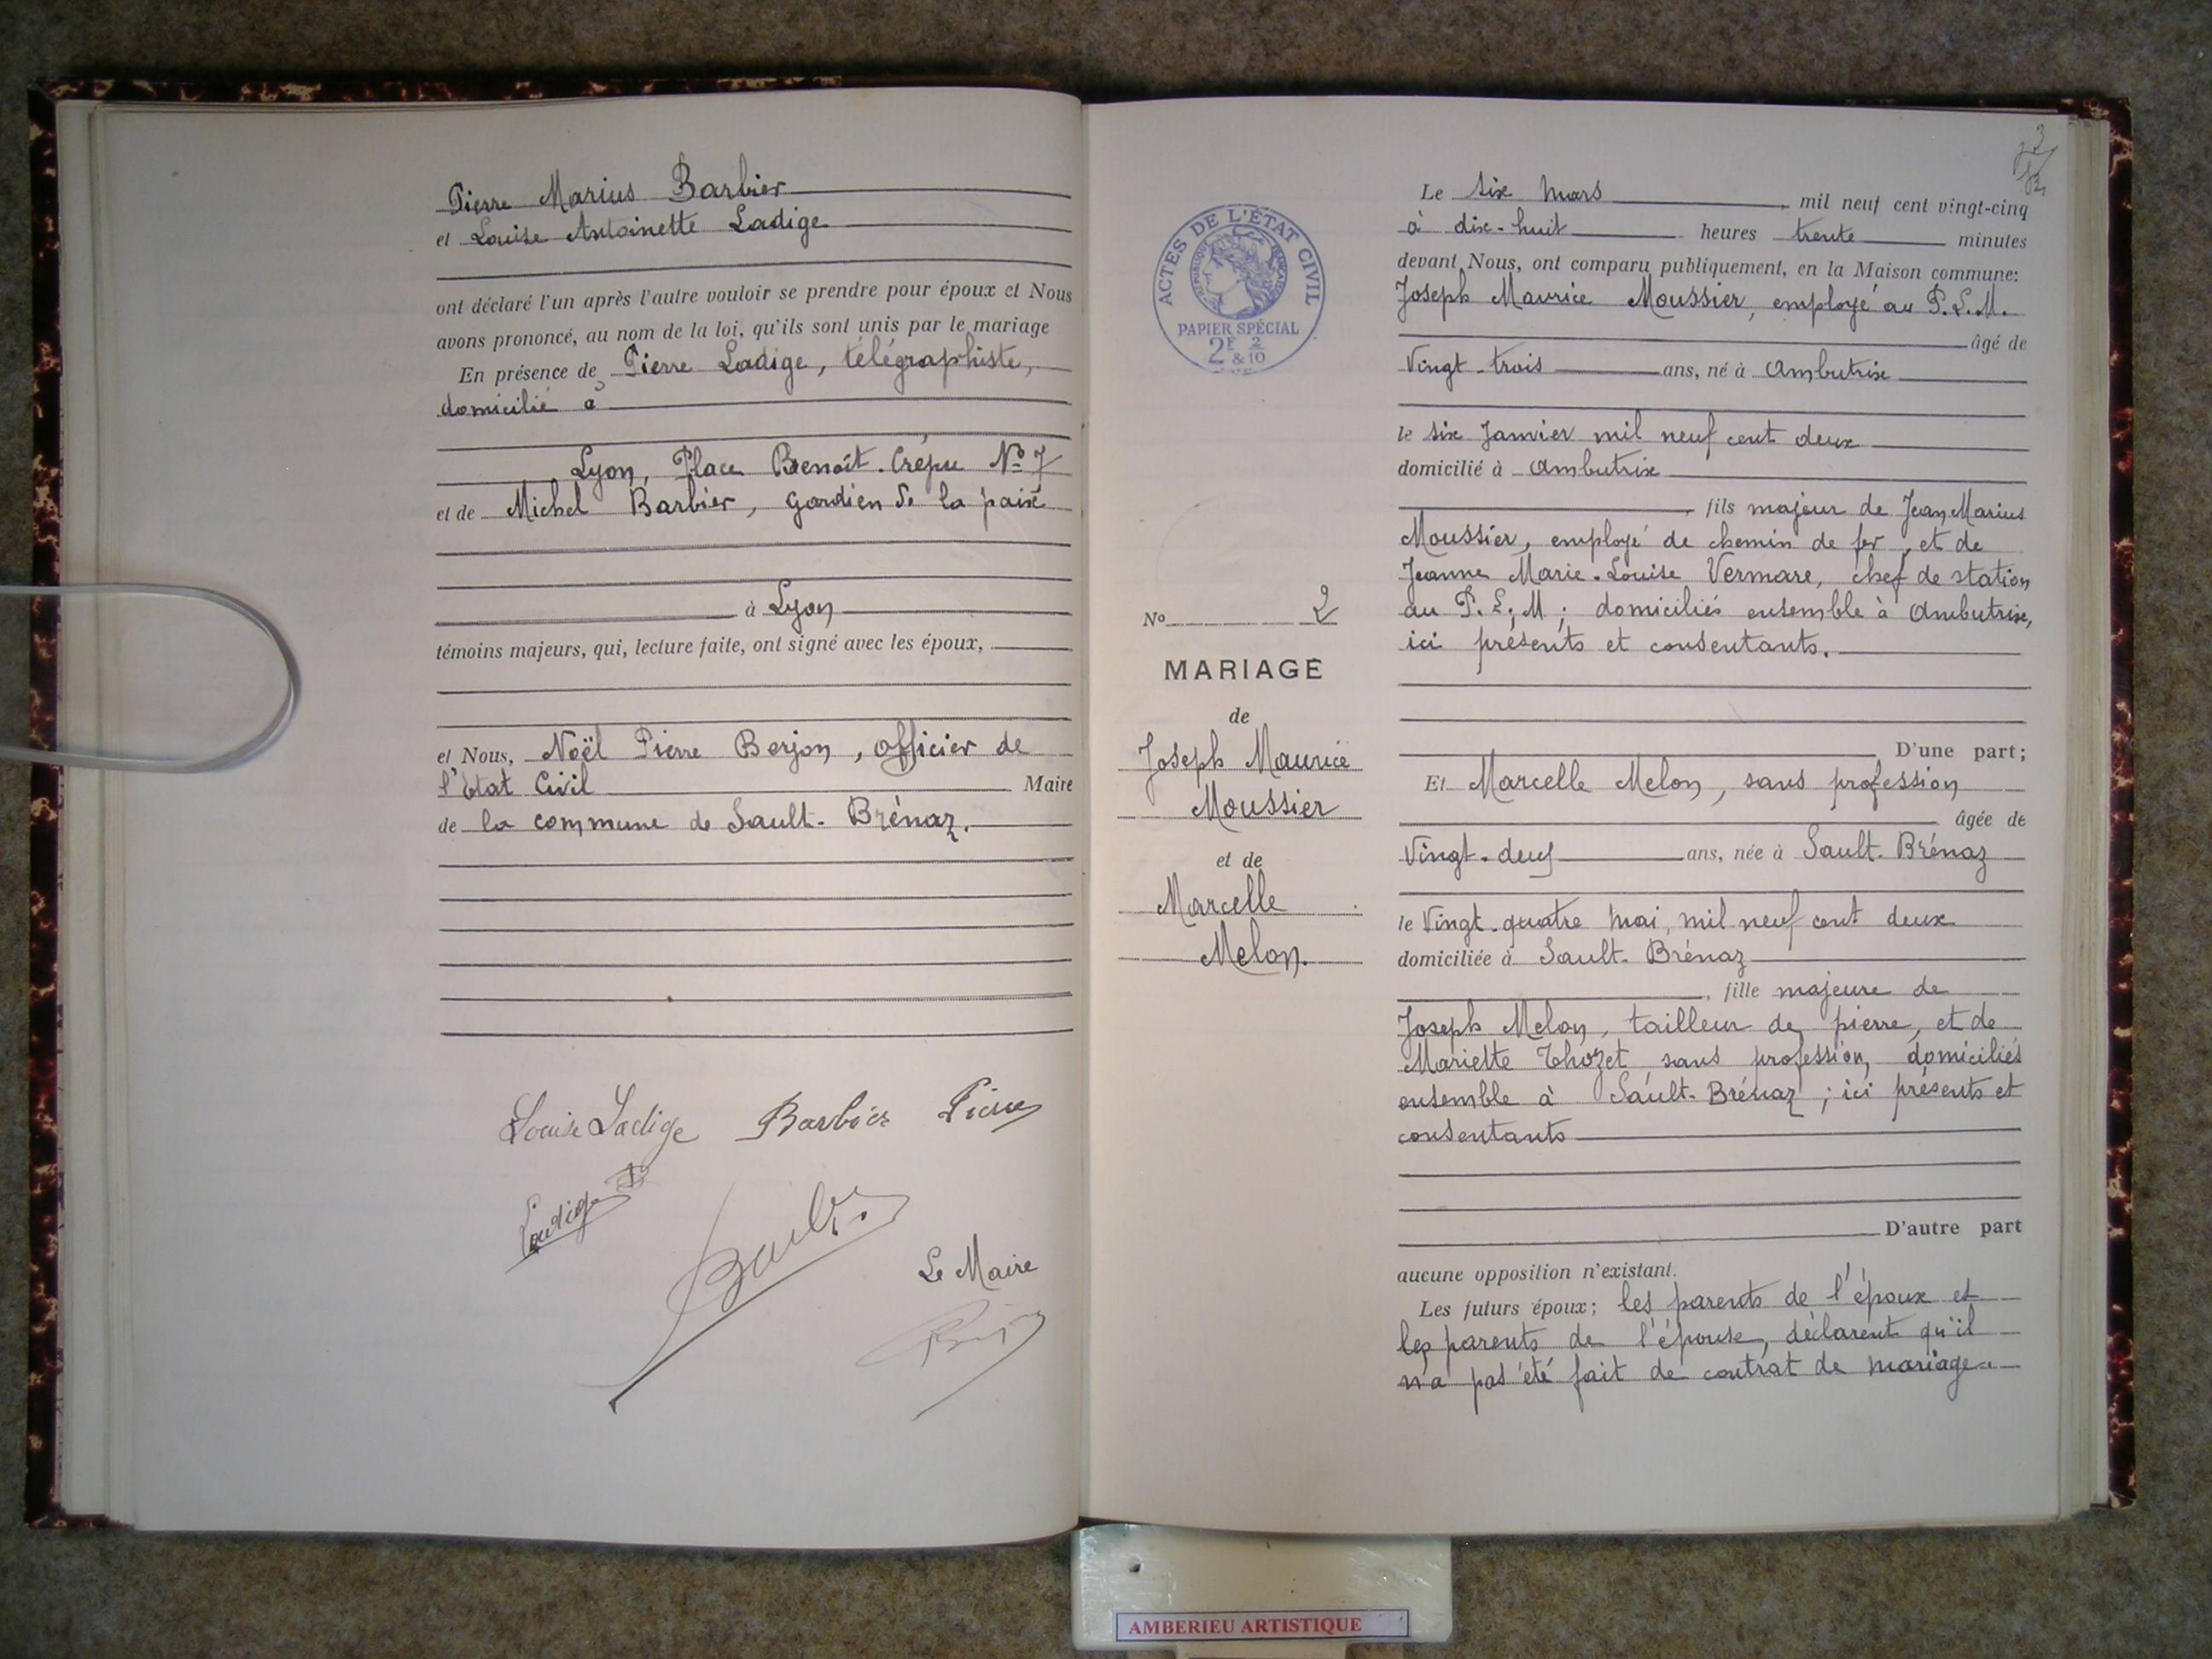 Pierre Marius Barbier
et Louise Antoinette Ladige
ont déclaré l'un après l'autre vouloir se prendre pour époux et Nous
avons prononcé, au nom de la loi, qu'ils sont unis par le mariage
En présence de Pierre Ladige, télégraphiste,
domicilié à
Lyon, Place Benoît-Crépu No 7
et de Michel Barbier, gardien de la paix
à Lyon
témoins majeurs, qui, lecture faite, ont signé avec les époux,
et Nous, Noël Pierre Berjon, officier de
l'Etat Civil Maire
de la commune de Sault-Brénaz.
Louise Ladige Barbier Pierre
Ladige
Barbier
Le Maire
ACTES DE L'ÉTAT CIVIL
RÉPUBLIQUE FRANÇAISE
PAPIER SPÉCIAL
2F & 2/10
No 2
MARIAGE
de
Joseph Maurice
Moussier
et de
Marcelle
Melon.
3
Le six mars, mil neuf cent vingt-cinq
à dix-huit heures trente minutes
devant Nous, ont comparu publiquement, en la Maison commune:
Joseph Maurice Moussier, employé au P.L.M.
âgé de
Vingt-trois ans, né à Ambutrix
le six Janvier mil neuf cent deux
domicilié à Ambutrix
, fils majeur de Jean Marius
Moussier, employé de chemin de fer, et de
Jeanne Marie-Louise Vermare, chef de station
au P.L.M; domiciliés ensemble à Ambutrix,
ici présents et consentants.
D'une part;
Et Marcelle Melon, sans profession
âgée de
Vingt-deux ans, née à Sault-Brénaz
le Vingt-quatre mai, mil neuf cent deux
domiciliée à Sault-Brénaz
, fille majeure de
Joseph Melon, tailleur de pierre, et de
Mariette Thozet sans profession, domiciliés
ensemble à Sault-Brénaz; ici présents et
consentants
D'autre part
aucune opposition n'existant.
Les futurs époux; les parents de l'époux et
les parents de l'épouse, déclarent qu'il
n'a pas été fait de contrat de mariage
AMBERIEU ARTISTIQUE